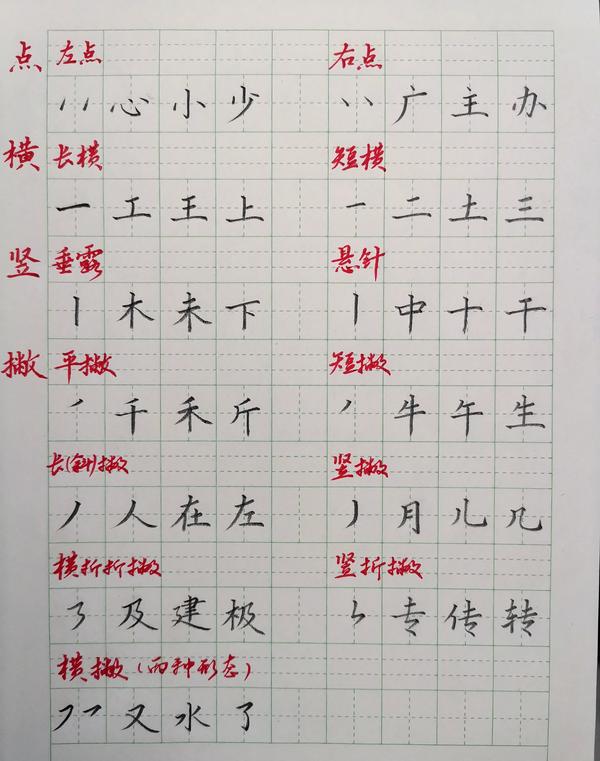 点 左点 右点
丶丶 心 小 少 丶丶 广 主 办
横 长横 短横
一 工 王 上 一 二 土 三
竖 垂露 悬针
丨 木 未 下 丨 中 十 干
撇 平撇 短撇
㇒ 千 禾 斤 ㇒ 牛 午 生
长(斜)撇 竖撇
丿 人 在 左 丿 月 儿 几
横折折撇 竖折撇
㇋ 及 建 极 ㇉ 专 传 转
横撇(两种形态)
㇇ 乛 又 水 了